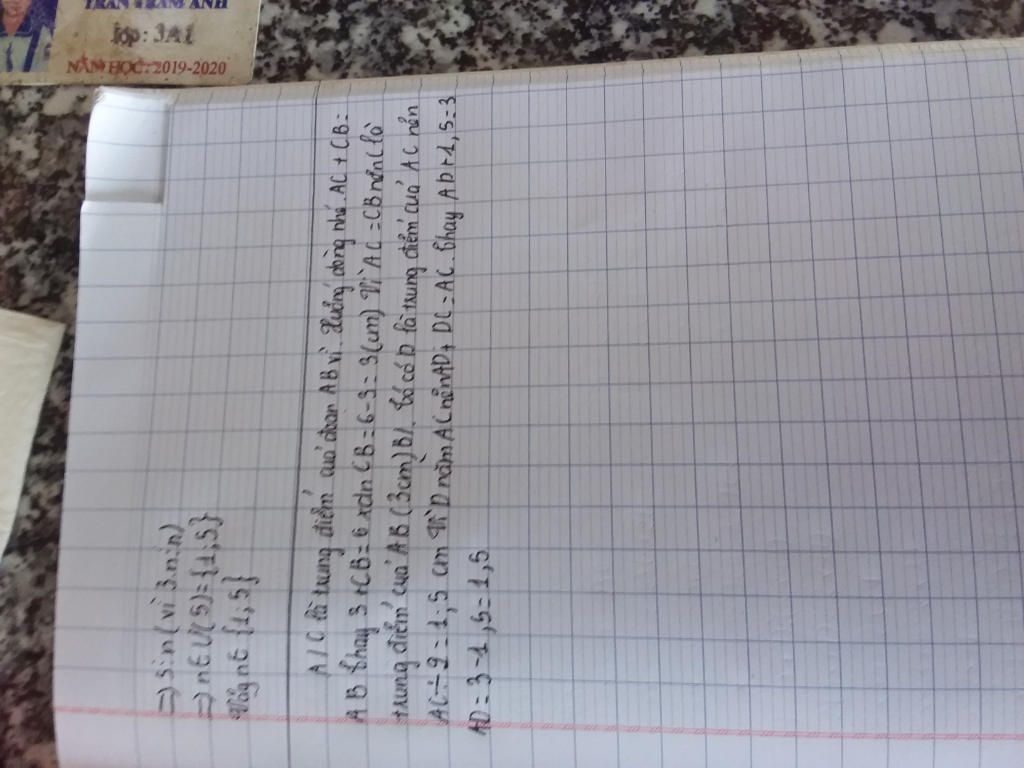 TRẦN TRÂM ANH
lớp: 3A1
NĂM HỌC: 2019-2020
=) 5 ⋮ n ( vì 3 n ⋮ n)
=) n ∈ Ư(5) = {1; 5}
Vậy n ∈ {1; 5}
A/ C là trung điểm của đoạn AB vì. Xuống dòng nhé. AC + CB =
AB hay 3 + CB = 6 xdn CB = 6 - 3 = 3 (cm) Vì AC = CB nên C là
trung điểm của AB (3cm) B/. Có D là trung điểm của AC nên
AC ÷ 2 = 1; 5 cm Vì D nằm AC nên AD + DC = AC. hay AD + 1, 5 = 3
AD = 3 - 1, 5 = 1, 5